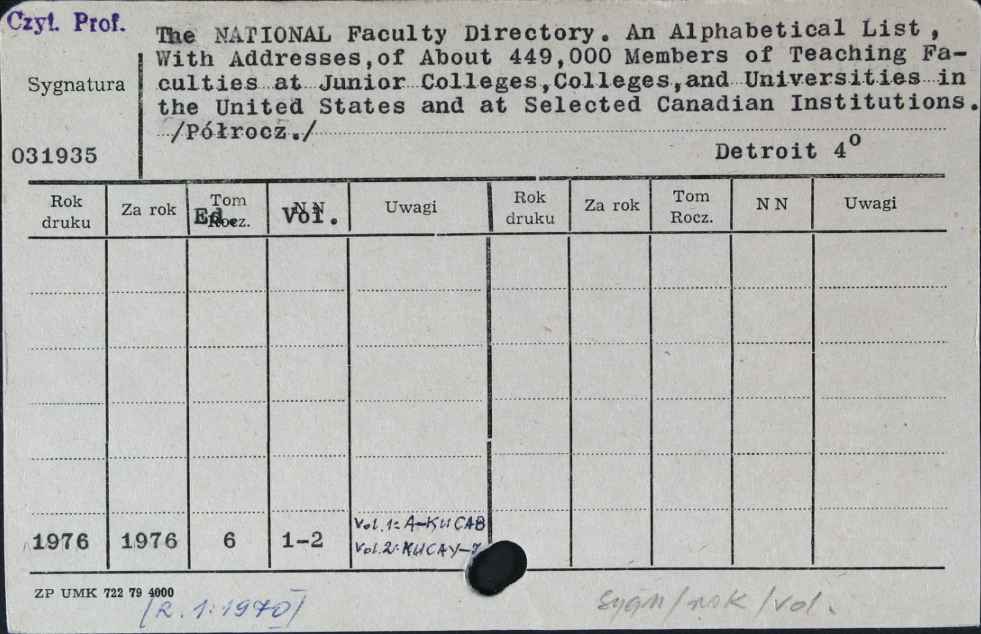 Czyt. Prof.
The NATIONAL Faculty Directory. An Alphabetical List,
With Addresses,of About 449,000 Members of Teaching Fa-
Sygnatura
culties at Junior Colleges,Colleges,and Universities in
the United States and at Selected Canadian Institutions.
/Półrocz./
031935
Detroit 4°
Rok druku Za rok Tom Rocz. Ed. N N Vol. Uwagi Rok druku Za rok Tom Rocz. N N Uwagi
1976 1976 6 1-2 Vol. 1: A-KUCAB
Vol. 2: KUCAY-Z
ZP UMK 722 79 4000
/R. 1: 1970/
Sygn/rok/vol.